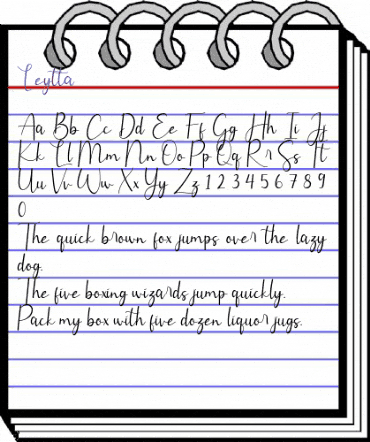 Leytta
Aa Bb Cc Dd Ee Ff Gg Hh Ii Jj
Kk Ll Mm Nn Oo Pp Qq Rr Ss Tt
Uu Vv Ww Xx Yy Zz 1 2 3 4 5 6 7 8 9
0
The quick brown fox jumps over the lazy
dog.
The five boxing wizards jump quickly.
Pack my box with five dozen liquor jugs.